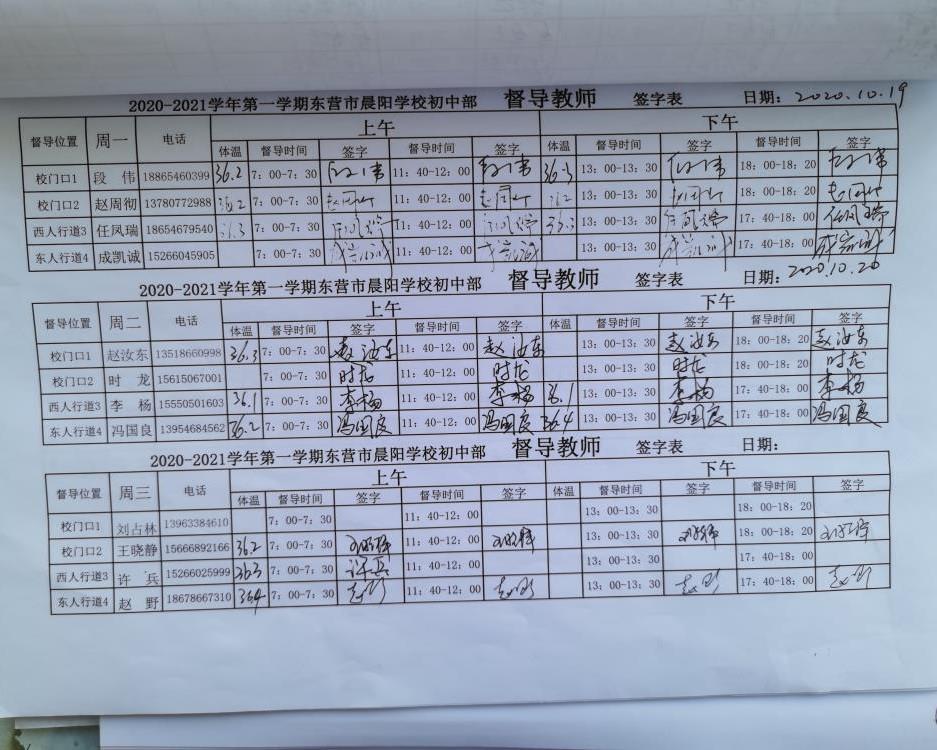 2020-2021学年第一学期东营市晨阳学校初中部 督导教师 签字表 日期: 2020.10.19
督导位置 周一 电话 上午 下午
体温 督导时间 签字 督导时间 签字 体温 督导时间 签字 督导时间 签字
校门口1 段 伟 18865460399 36.2 7: 00-7: 30 段伟 11: 40-12: 00 段伟 36.3 13: 00-13: 30 段伟 18: 00-18: 20 段伟
校门口2 赵周彻 13780772988 36.2 7: 00-7: 30 11: 40-12: 00 36.2 13: 00-13: 30 18: 00-18: 20
西人行道3 任凤瑞 18654679540 36.3 7: 00-7: 30 任凤瑞 11: 40-12: 00 任凤瑞 13: 00-13: 30 任凤瑞 17: 40-18: 00 任凤瑞
东人行道4 成凯诚 15266045905 7: 00-7: 30 11: 40-12: 00 13: 00-13: 30 17: 40-18: 00
2020-2021学年第一学期东营市晨阳学校初中部 督导教师 签字表 日期: 2020.10.20
督导位置 周二 电话 上午 下午
体温 督导时间 签字 督导时间 签字 体温 督导时间 签字 督导时间 签字
校门口1 赵汝东 13518660998 36.3 7: 00-7: 30 赵汝东 11: 40-12: 00 赵汝东 13: 00-13: 30 赵汝东 18: 00-18: 20 赵汝东
校门口2 时 龙 15615067001 7: 00-7: 30 时龙 11: 40-12: 00 时龙 13: 00-13: 30 时龙 18: 00-18: 20 时龙
西人行道3 李 杨 15550501603 36.1 7: 00-7: 30 李杨 11: 40-12: 00 李杨 36.1 13: 00-13: 30 李杨 17: 40-18: 00 李杨
东人行道4 冯国良 13954684562 36.2 7: 00-7: 30 冯国良 11: 40-12: 00 冯国良 36.4 13: 00-13: 30 冯国良 17: 40-18: 00 冯国良
2020-2021学年第一学期东营市晨阳学校初中部 督导教师 签字表 日期:
督导位置 周三 电话 上午 下午
体温 督导时间 签字 督导时间 签字 体温 督导时间 签字 督导时间 签字
校门口1 刘占林 13963384610 7: 00-7: 30 11: 40-12: 00 13: 00-13: 30 18: 00-18: 20
校门口2 王晓静 15666892166 36.2 7: 00-7: 30 11: 40-12: 00 13: 00-13: 30 18: 00-18: 20
西人行道3 许 兵 15266025999 36.3 7: 00-7: 30 许兵 11: 40-12: 00 13: 00-13: 30 17: 40-18: 00
东人行道4 赵 野 18678667310 36.4 7: 00-7: 30 赵野 11: 40-12: 00 赵野 13: 00-13: 30 赵野 17: 40-18: 00 赵野